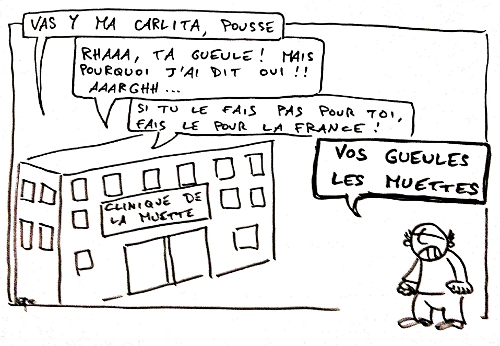 VAS Y MA CARLITA, POUSSE
RHAAA, TA GUEULE! MAIS
POURQUOI J'AI DIT OUI!!
AAARGHH...
SI TU LE FAIS PAS POUR TOI,
FAIS LE POUR LA FRANCE!
VOS GUEULES
LES MUETTES
CLINIQUE DE
LA MUETTE